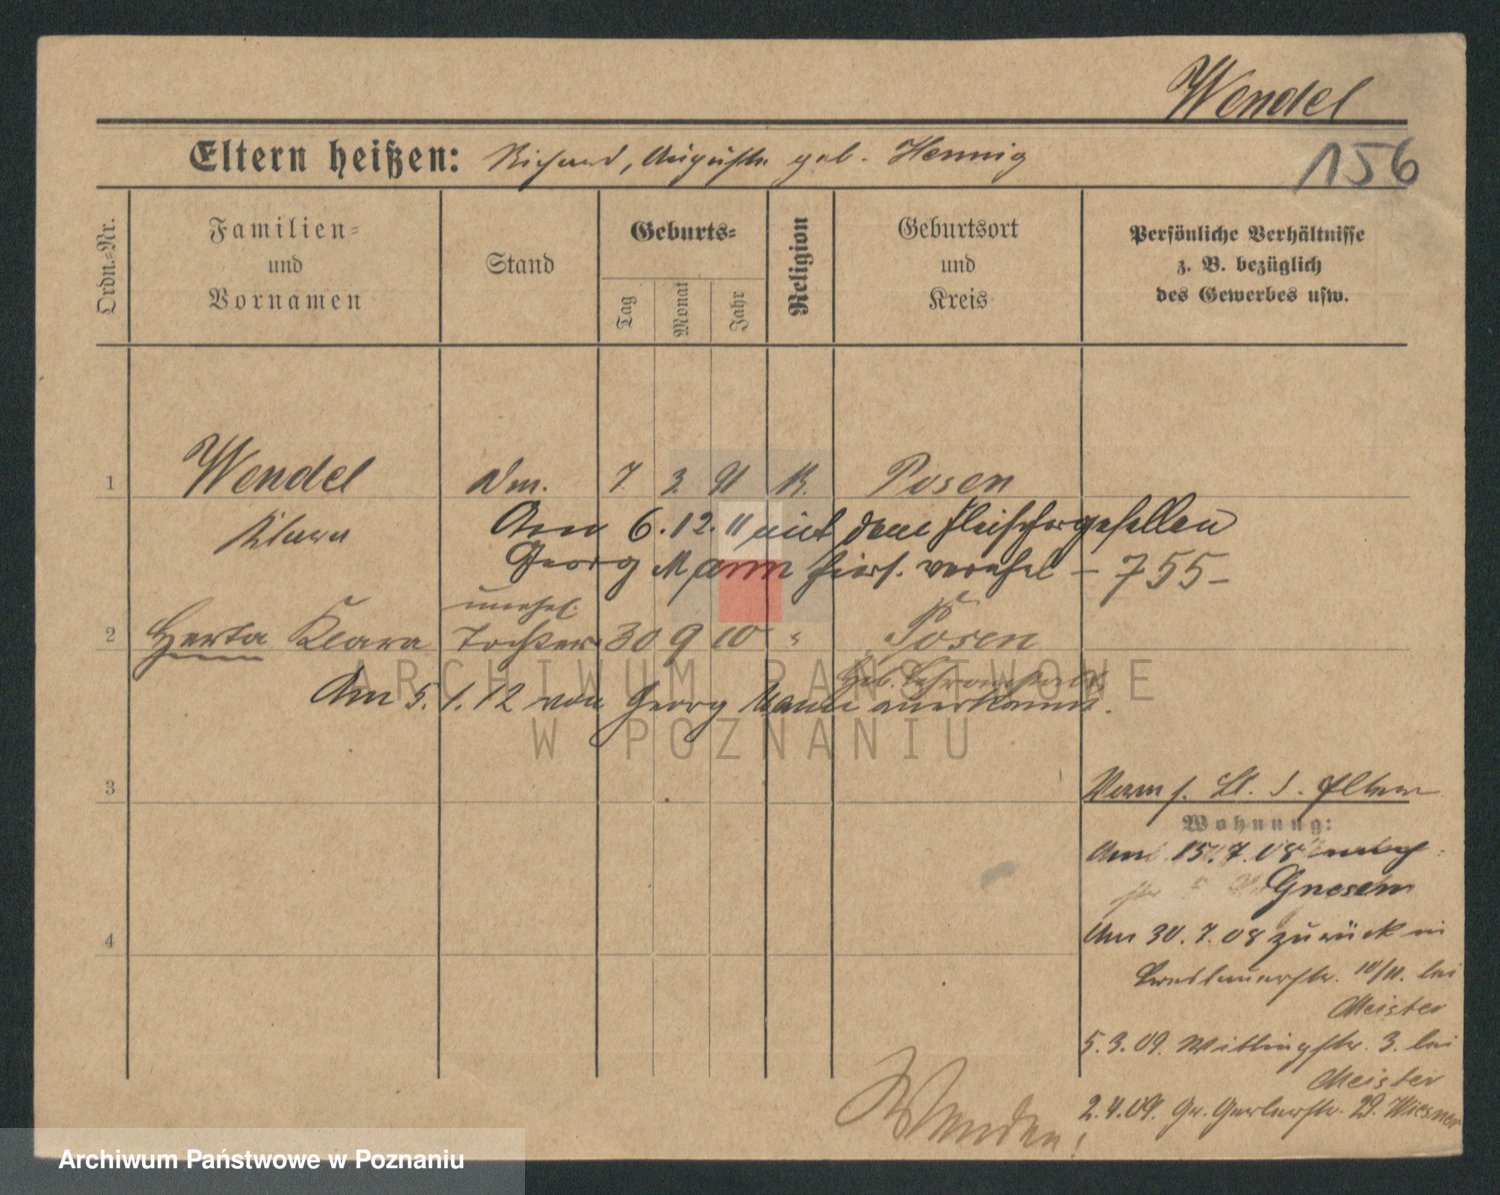 Wendel
156
Eltern heißen: Richard, Auguste geb. Hennig
Ordn.=Nr.
Familien=
und
Vornamen
Stand
Geburts=
Tag
Monat
Jahr
Religion
Geburtsort
und
Kreis
Persönliche Verhältnisse
z. B. bezüglich
des Gewerbes usw.
1 Wendel 7. 3. 91 K. Posen
Klara Am 6.12.11 mit dem Fleischergesellen
Georg Mann hiers. verehel. – 755 –
unehel.
2 Herta Klara Tochter 30 9 10 " Posen
Am 5.1.12 von Georg Mann anerkannt.
3
4
Wohnung:
Am 15.7.08 nach
Gnesen
Am 30.7.08 zurück in
Breslauerstr. 10/11. bei
Meister
5.3.09. Wittingstr. 3. bei
Meister
2.4.09. Gr. Gerberstr. 29. Wiesner
Wenden!
ARCHIWUM PAŃSTWOWE
W POZNANIU
Archiwum Państwowe w Poznaniu